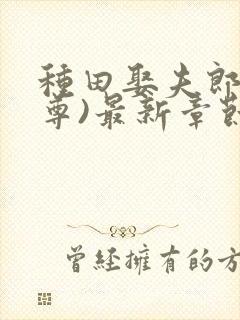 種田娶夫郎
尊)最新章節
曾經擁有的方